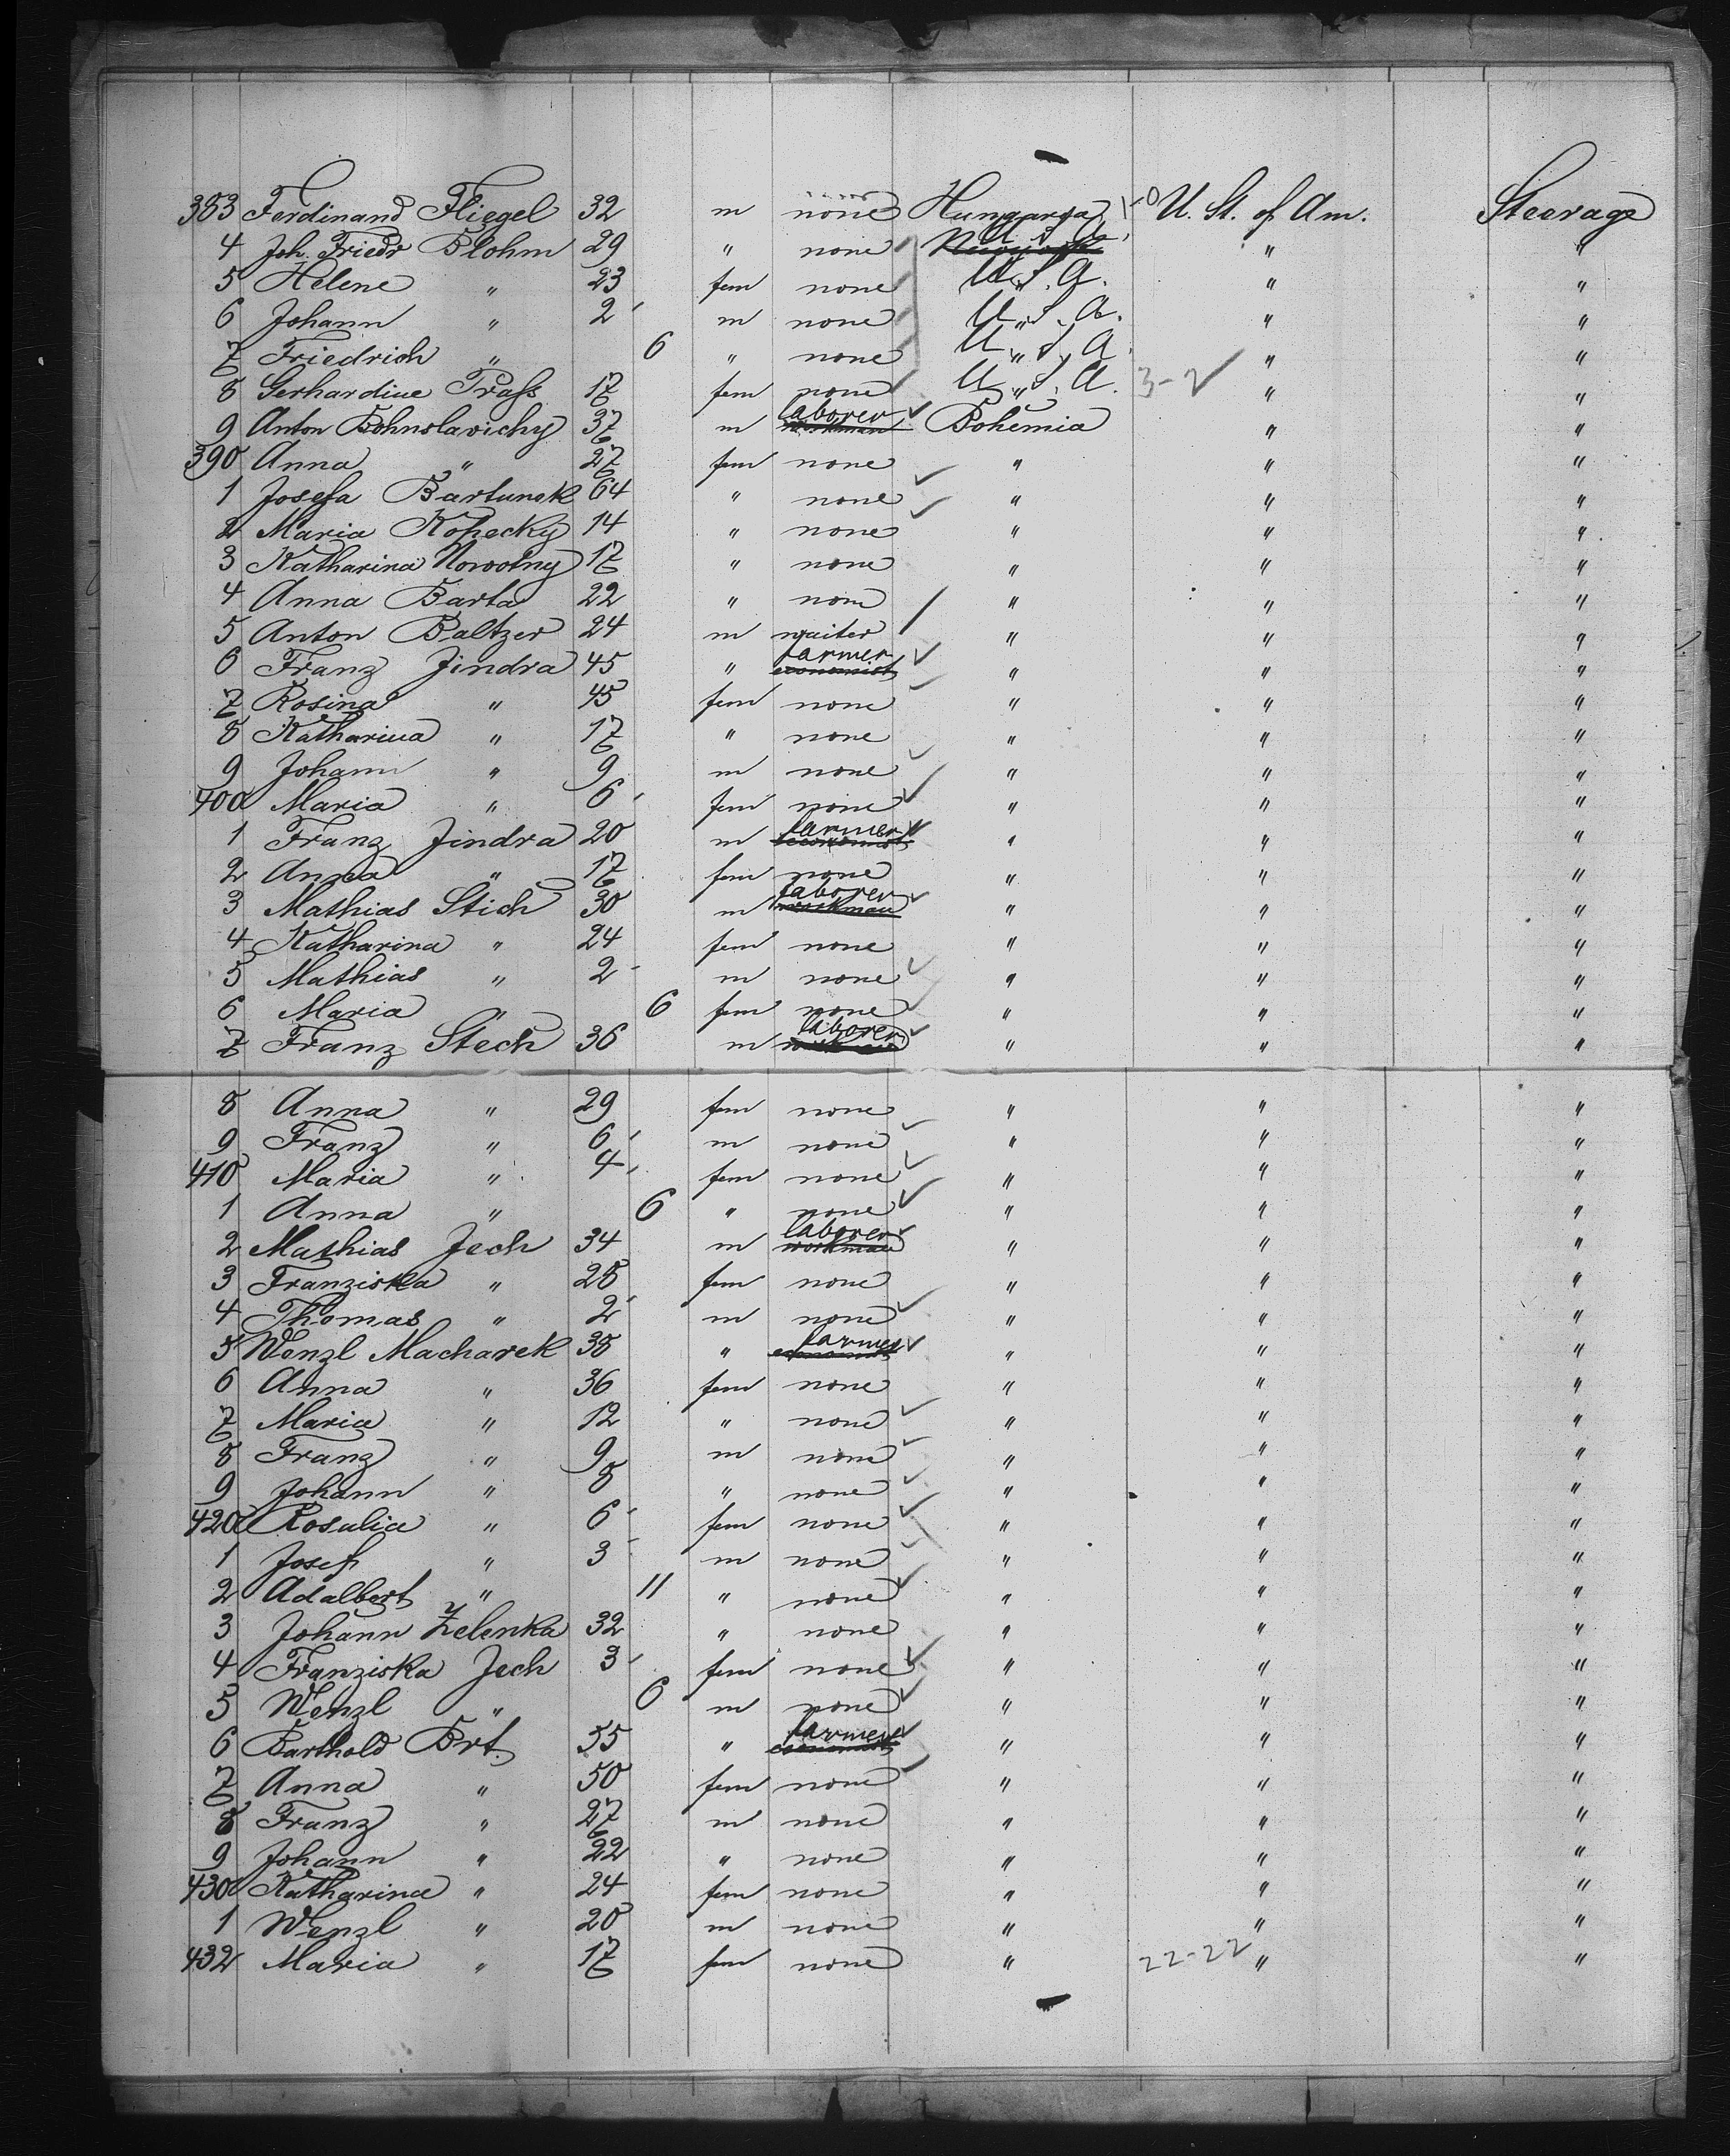 383 Ferdinand Fliegel 32 m none Hungarya 1-0 U. St. of Am. Steerage
4 Joh. Friedr Blohm 29 " none U.S.A. " "
5 Helene " 23 fem none U.S.A. " "
6 Johann " 2 m none U.S.A. " "
7 Friedrich " 6 " none U.S.A. " "
8 Gerhardine Prass 17 fem none U.S.A. 3-2 " "
9 Anton Bohnslavichy 37 m laborer workman Bohemia " "
390 Anna " 27 fem none " " "
1 Josefa Bartunek 64 " none " " "
2 Maria Kopecky 14 " none " " "
3 Katharina Nowotny 17 " none " " "
4 Anna Barta 22 " none " " "
5 Anton Baltzer 24 m waiter " " "
6 Franz Jindra 45 " farmer economist " " "
7 Rosina " 45 fem none " " "
8 Katharina " 17 " none " " "
9 Johann " 9 m none " " "
400 Maria " 6 fem none " " "
1 Franz Jindra 20 m farmer economist " " "
2 Anna " 17 fem none " " "
3 Mathias Stich 30 m laborer workman " " "
4 Katharina " 24 fem none " " "
5 Mathias " 2 m none " " "
6 Maria " 6 fem none " " "
7 Franz Stech 36 m laborer workman " " "
8 Anna " 29 fem none " " "
9 Franz " 6 m none " " "
410 Maria " 4 fem none " " "
1 Anna " 6 " none " " "
2 Mathias Jech 34 m laborer workman " " "
3 Franziska " 28 fem none " " "
4 Thomas " 2 m none " " "
5 Wenzl Macharek 38 " farmer economist " " "
6 Anna " 36 fem none " " "
7 Maria " 12 " none " " "
8 Franz " 9 m none " " "
9 Johann " 8 " none " " "
420 Rosalia " 6 fem none " " "
1 Josef " 3 m none " " "
2 Adalbert " 11 " none " " "
3 Johann Zelenka 32 " none " " "
4 Franziska Jech 3 fem none " " "
5 Wenzl " 6 m none " " "
6 Barthold Brt. 55 " farmer economist " " "
7 Anna " 50 fem none " " "
8 Franz " 27 m none " " "
9 Johann " 22 " none " " "
430 Katharina " 24 fem none " " "
1 Wenzl " 20 m none " " "
432 Maria " 17 fem none " 22-22 " "